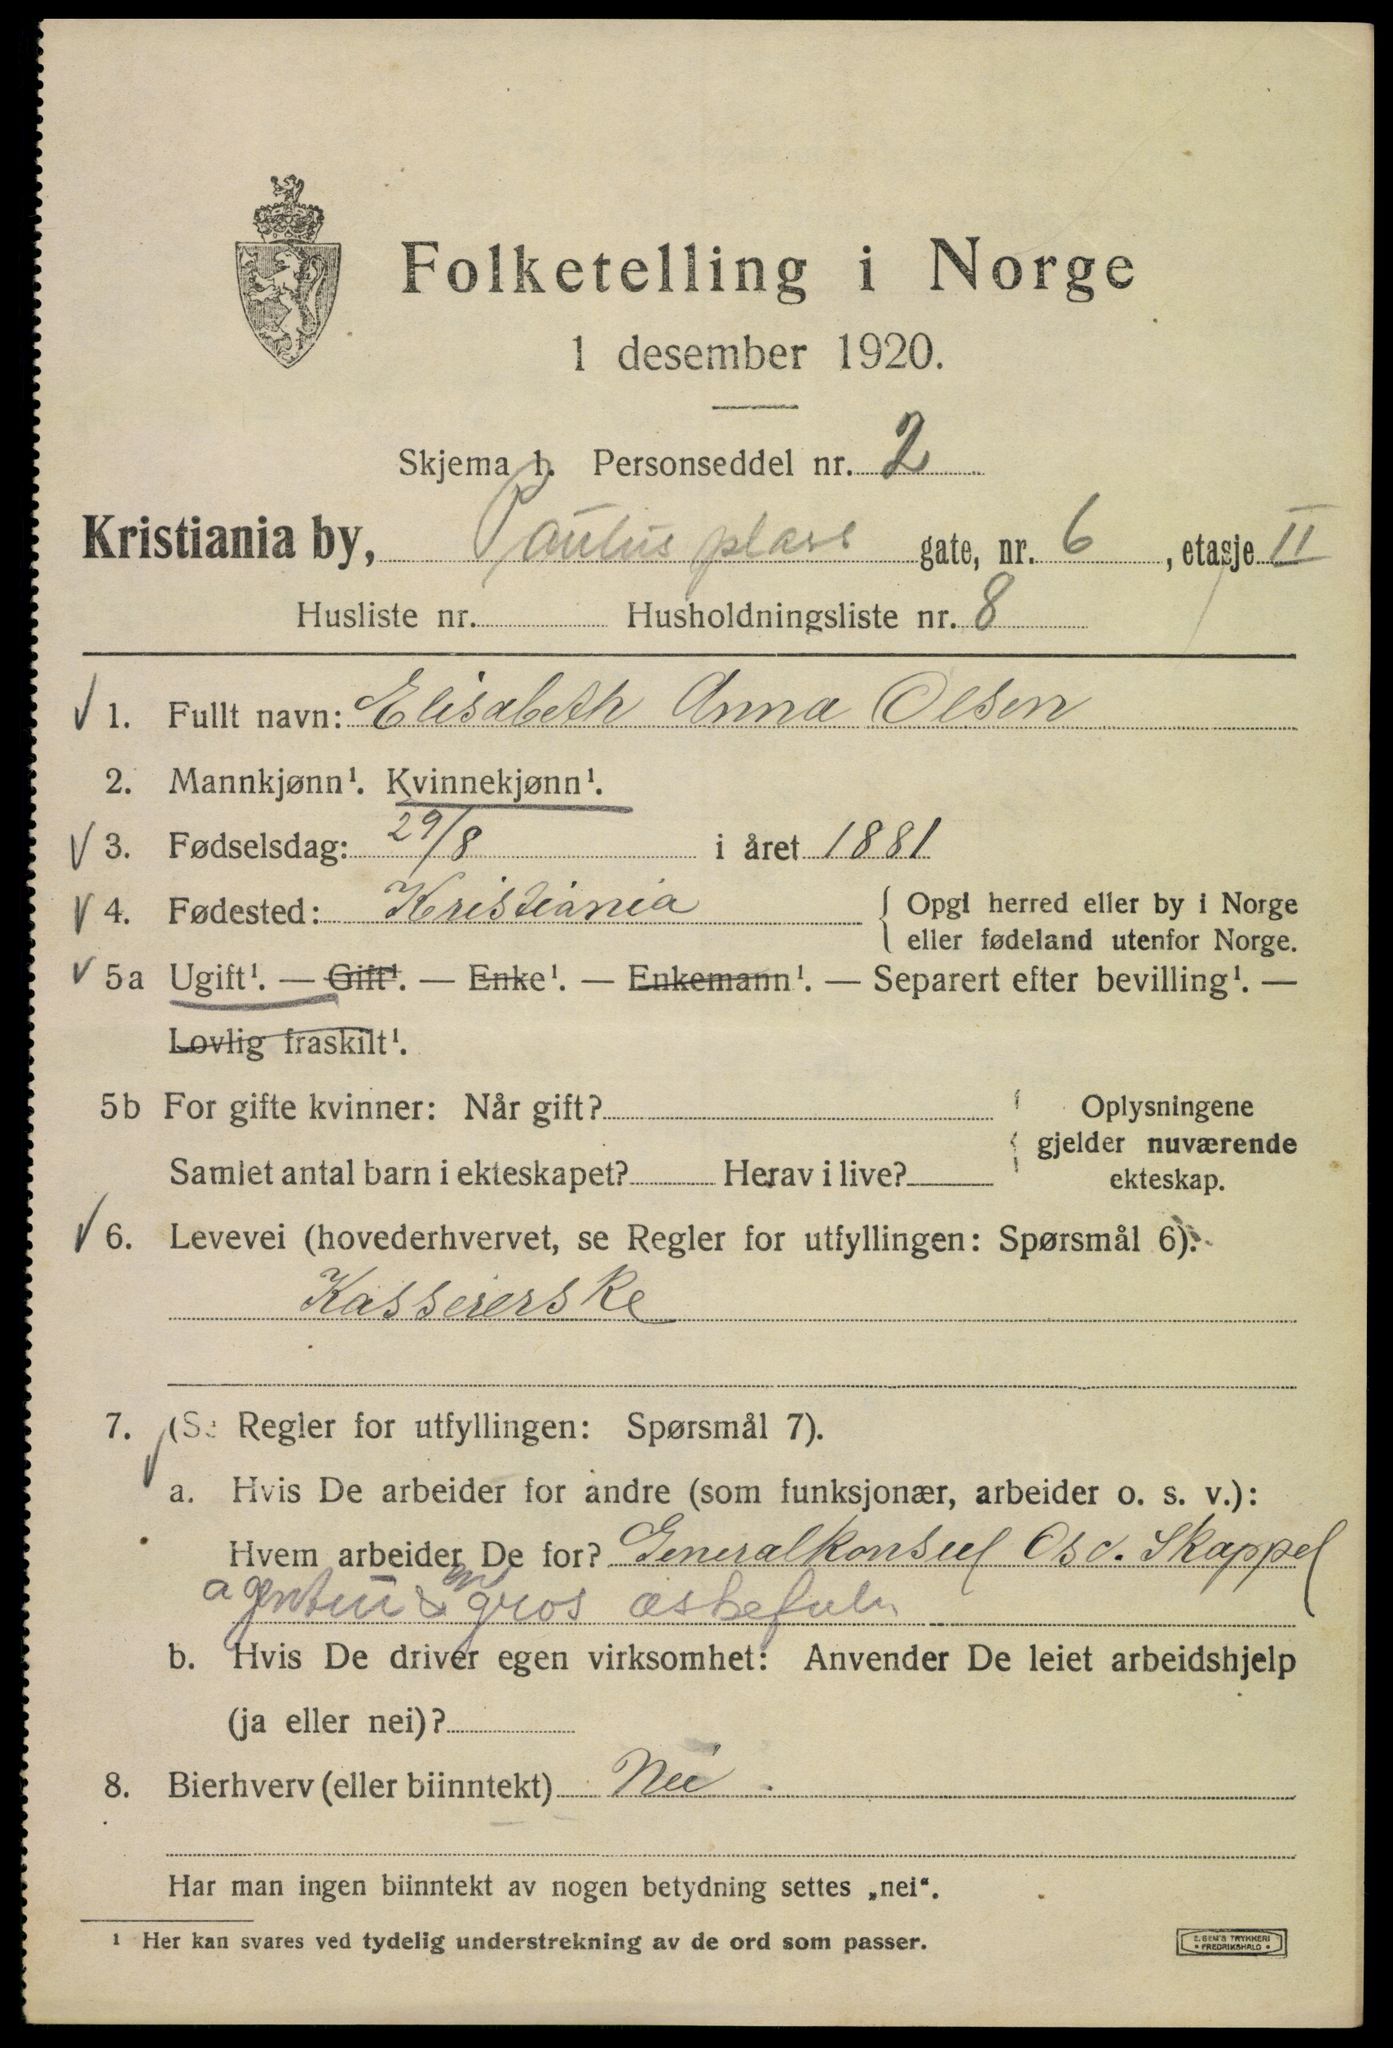 Folketelling i Norge
1 desember 1920.
Skjema 1. Personseddel nr. 2
Kristiania by, Paulus plass gate, nr. 6, etasje II
Husliste nr. Husholdningsliste nr. 8
1. Fullt navn: Elisabeth Anna Olsen
2. Mannkjønn¹. Kvinnekjønn¹.
3. Fødselsdag: 29/8 i året 1881
4. Fødested: Kristiania { Opgi herred eller by i Norge
eller fødeland utenfor Norge.
5a Ugift¹. — Gift¹. — Enke¹. — Enkemann¹. — Separert efter bevilling¹. —
Lovlig fraskilt¹.
5b For gifte kvinner: Når gift? Oplysningene
gjelder nuværende
Samlet antal barn i ekteskapet? Herav i live? ekteskap.
6. Levevei (hovederhvervet, se Regler for utfyllingen: Spørsmål 6).
Kassererske
7. (Se Regler for utfyllingen: Spørsmål 7).
a. Hvis De arbeider for andre (som funksjonær, arbeider o. s. v.):
Hvem arbeider De for? Generalkonsul Osc. Skappel
agentur & en gros æskefabr
b. Hvis De driver egen virksomhet: Anvender De leiet arbeidshjelp
(ja eller nei)?
8. Bierhverv (eller biinntekt) Nei.
Har man ingen biinntekt av nogen betydning settes „nei“.
¹ Her kan svares ved tydelig understrekning av de ord som passer.
E. SEM'S TRYKKERI
• FREDRIKSHALD •